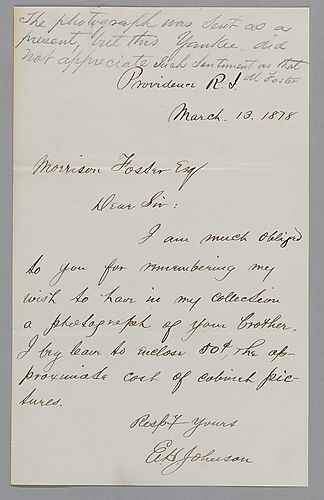 The photograph was sent as a
present, but this Yankee did
not appreciate such sentiment as that
M Foster
Providence R. I.
March. 13. 1878
Morrison Foster Esq
Dear Sir:
I am much obliged
to you for remembering my
wish to have in my collection
a photograph of your brother.
I beg leave to enclose 50¢, the ap-
proximate cost of cabinet pic-
tures.
Respt Yours
E H Johnson